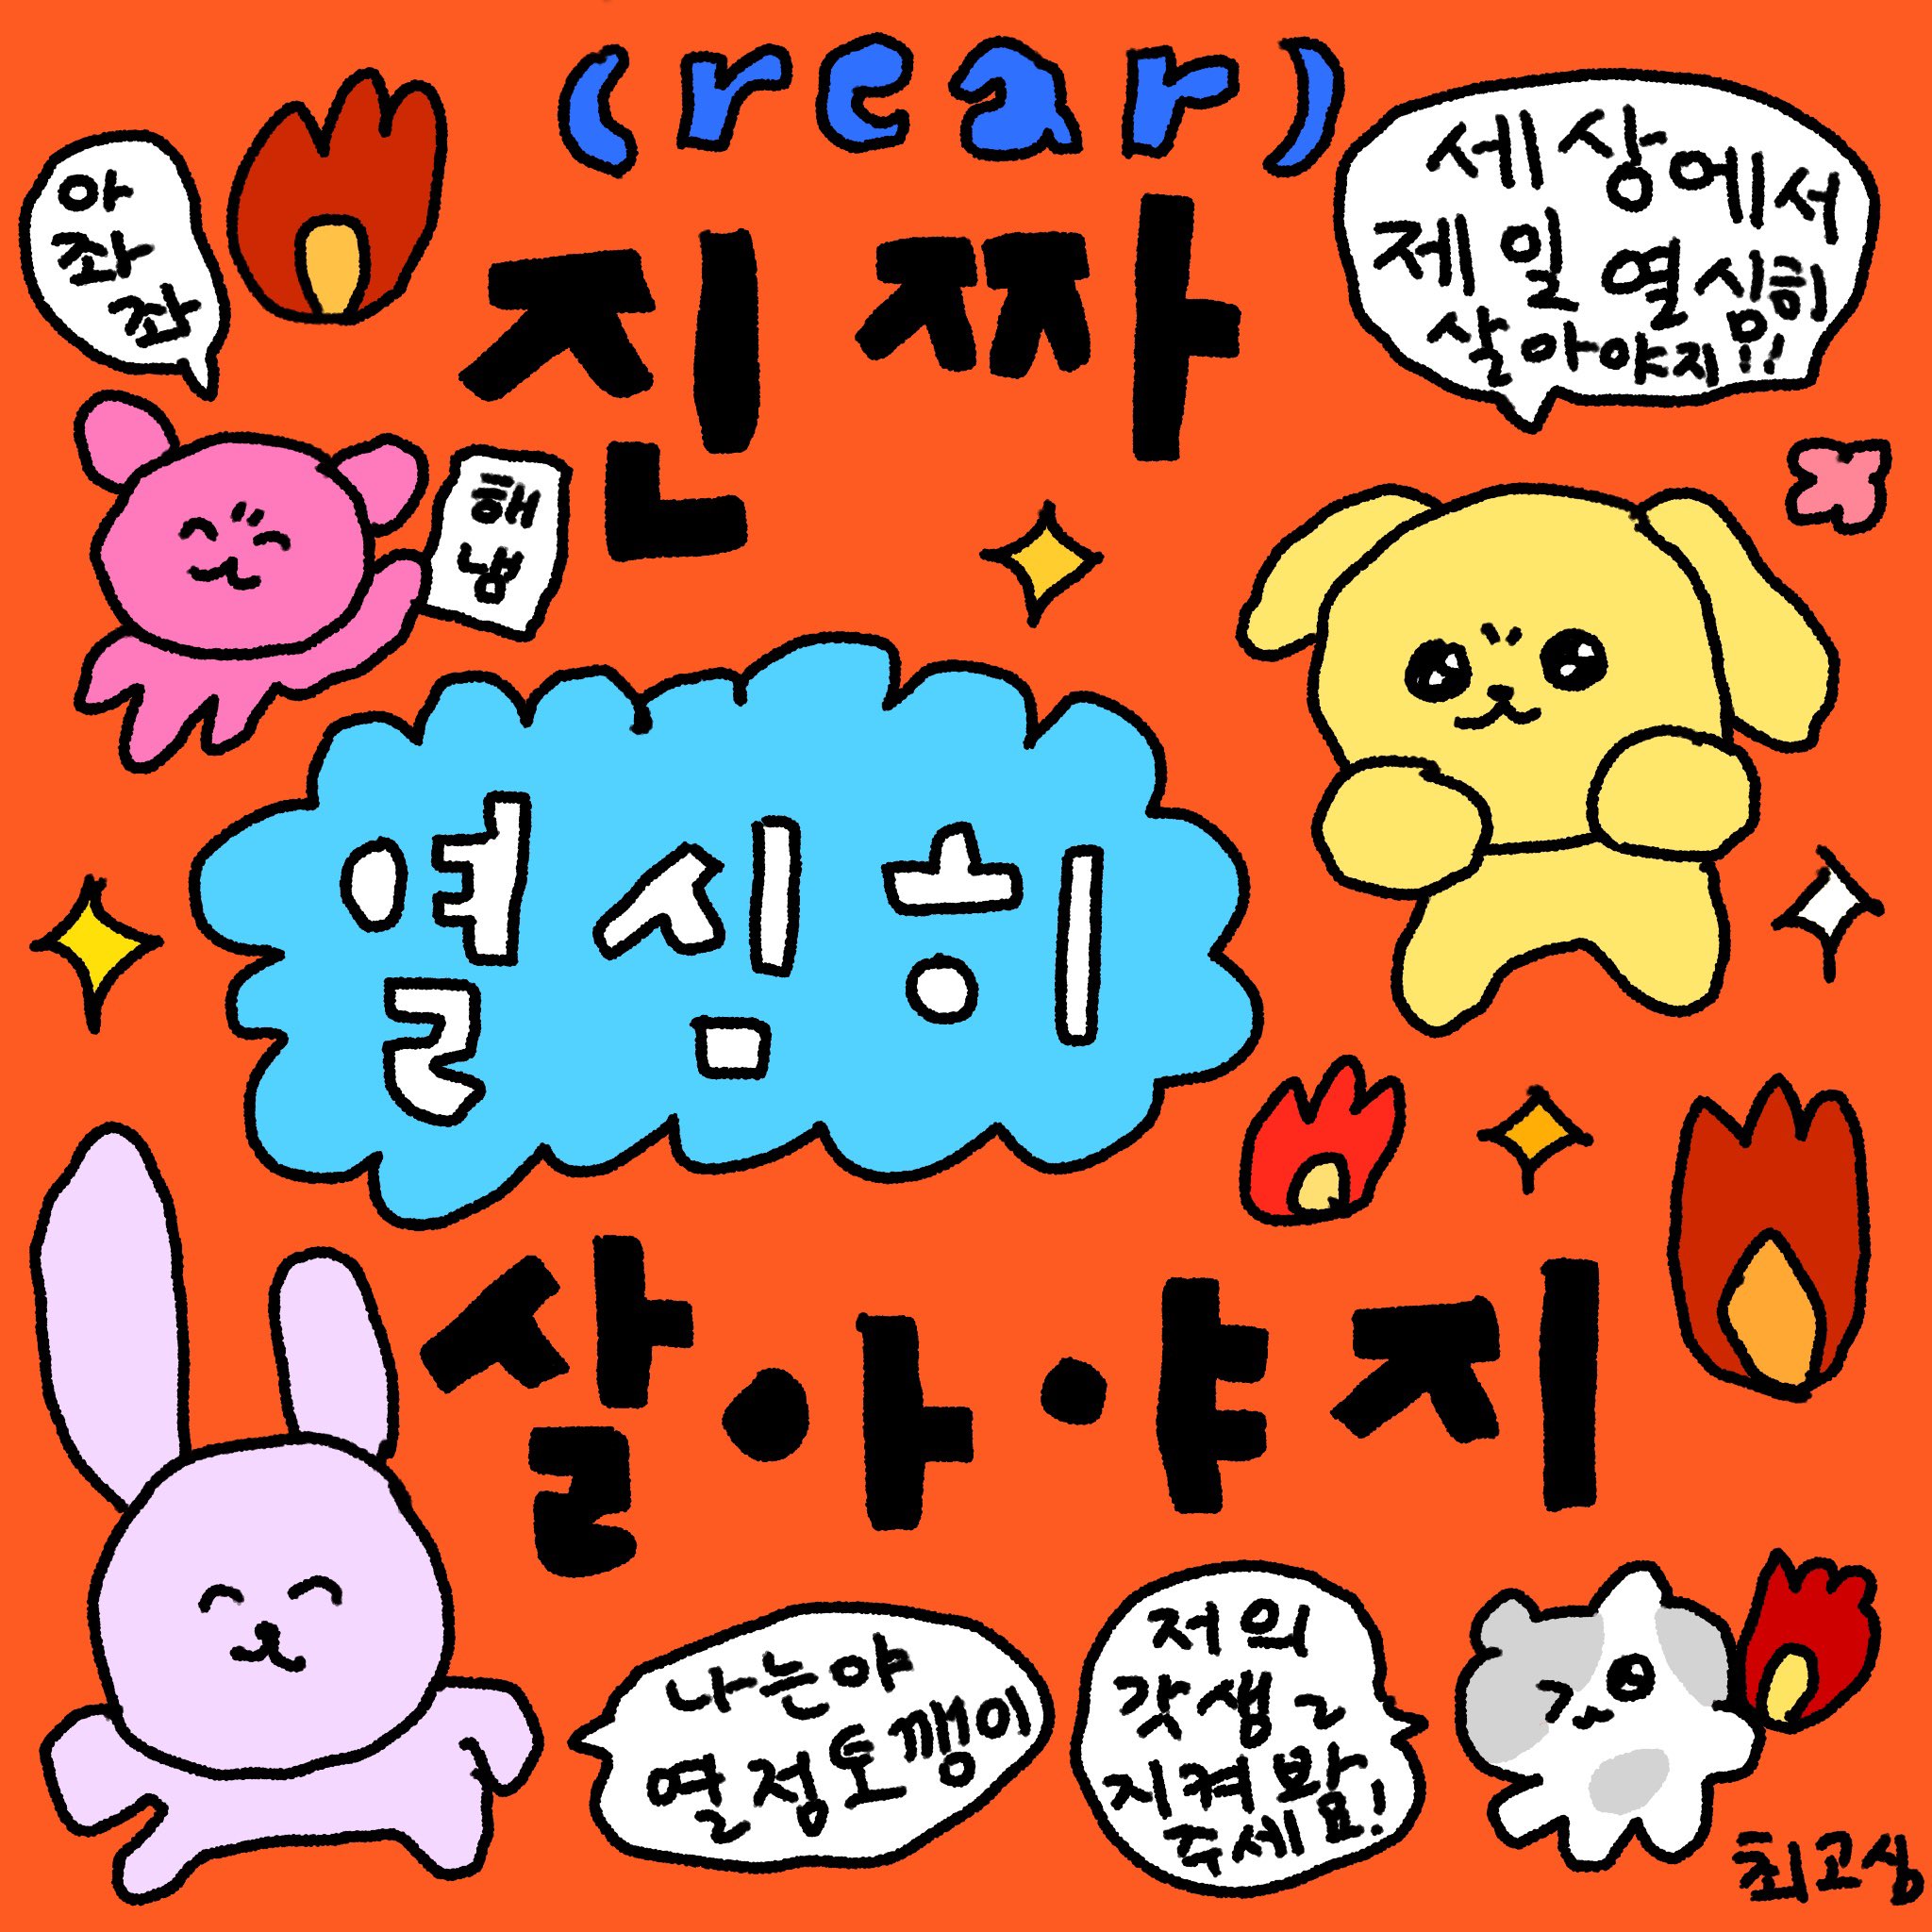 (rear)
진짜
아
좌
좍
세상에서
제일 열심히
살아야지 뭐!
해
냥
열심히
살아야지
나는야
열정도깽이
저의
갓생크
지켜봐
주세요!
최고심